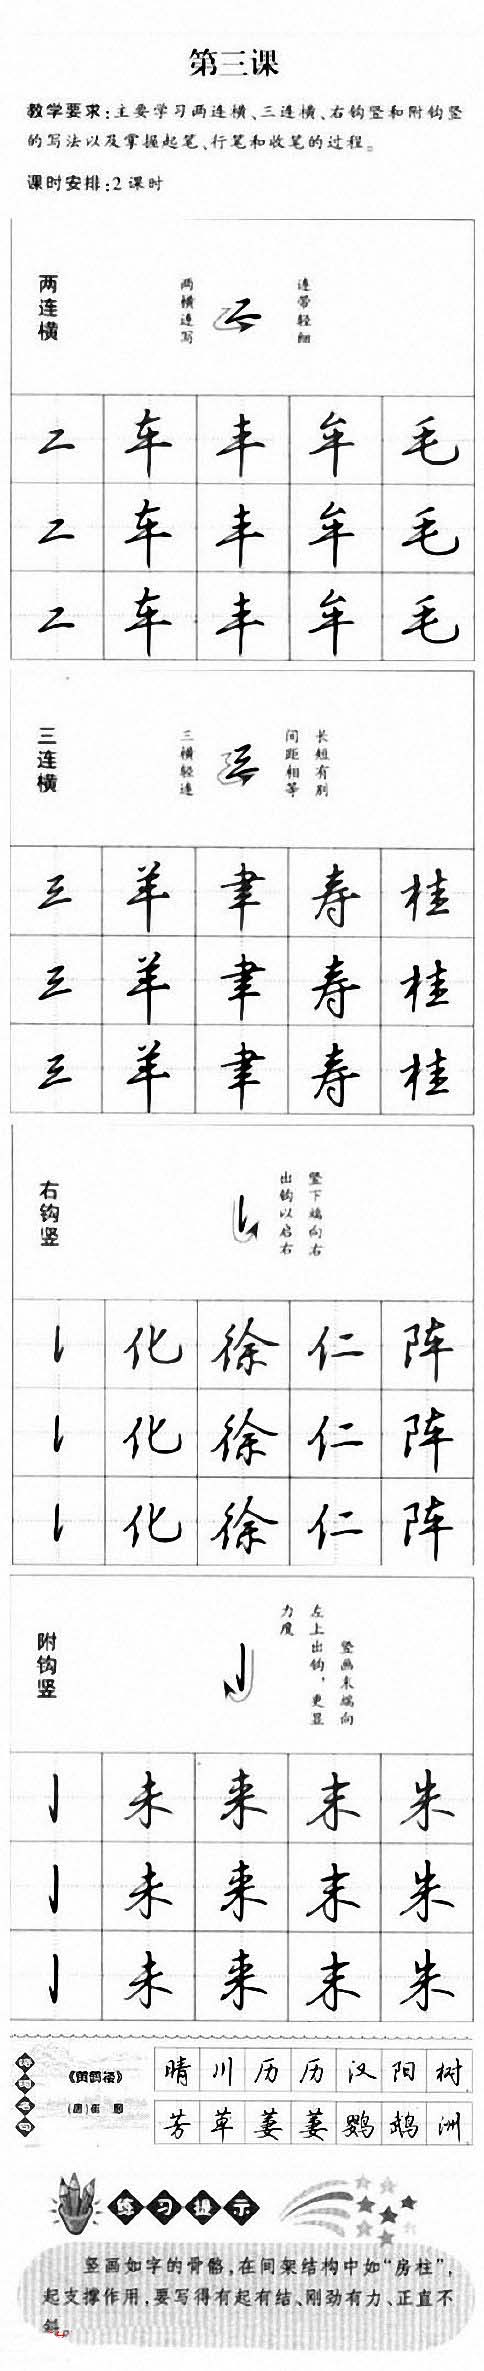 第三课
教学要求:主要学习两连横、三连横、右钩竖和附钩竖
的写法以及掌握起笔、行笔和收笔的过程。
课时安排:2课时
两连横
两横连写
连带轻细
二 车 丰 牟 毛
二 车 丰 牟 毛
二 车 丰 牟 毛
三连横
三横轻连
长短有别
间距相等
三 羊 聿 寿 桂
三 羊 聿 寿 桂
三 羊 聿 寿 桂
右钩竖
竖下端向右
出钩以启右
化 徐 仁 阵
化 徐 仁 阵
化 徐 仁 阵
附钩竖
竖画末端向
左上出钩,更显
力度
亅 未 来 末 朱
亅 未 来 末 朱
亅 未 来 末 朱
名句
《黄鹤楼》
(唐)崔颢
晴川历历汉阳树
芳草萋萋鹦鹉洲
练习提示
竖画如字的骨骼,在间架结构中如“房柱”,
起支撑作用,要写得有起有结、刚劲有力、正直不